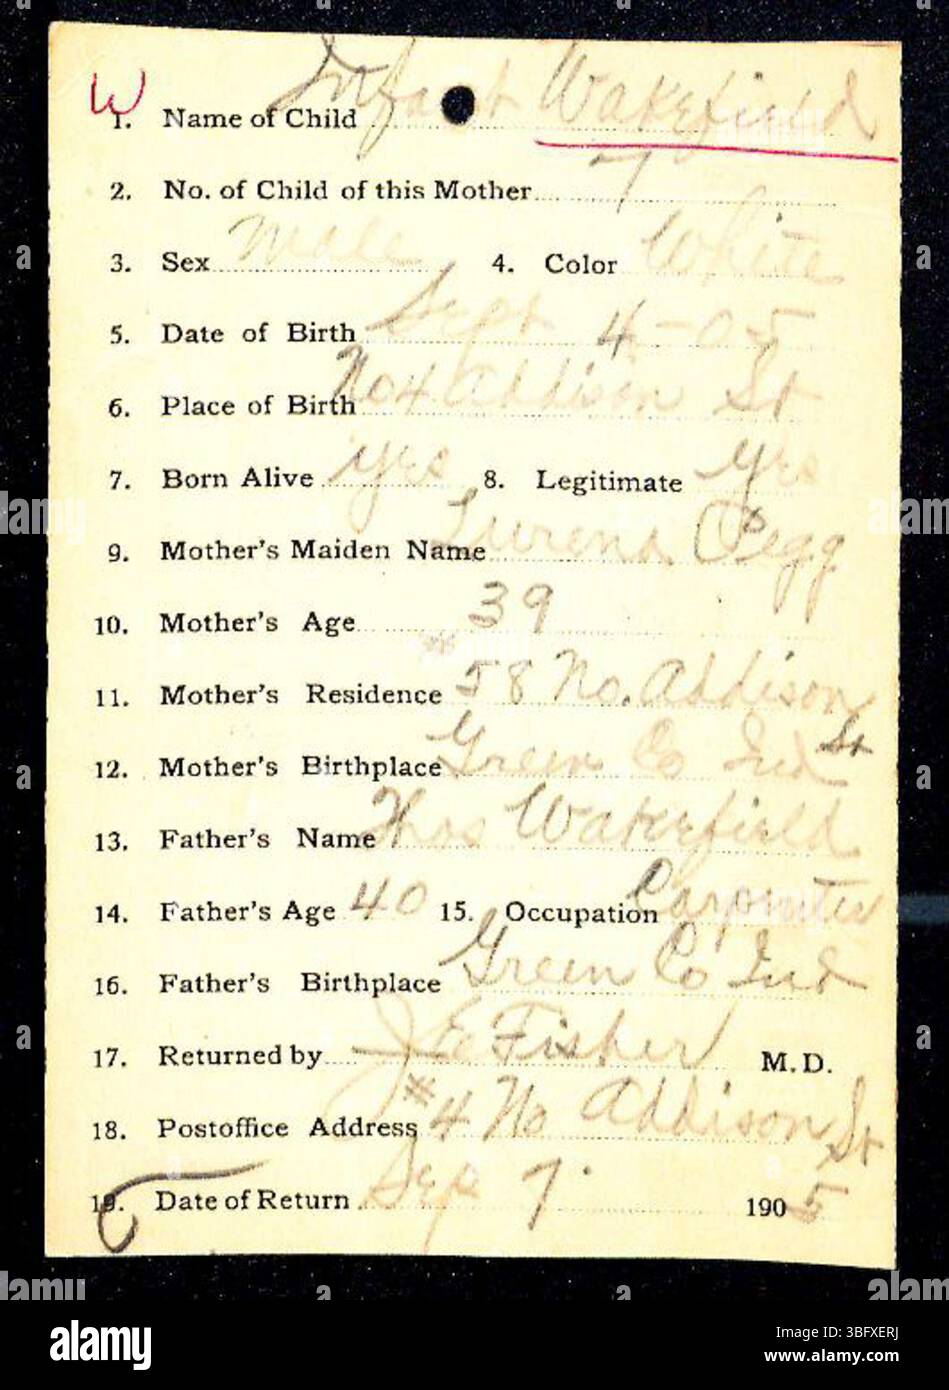 W
1. Name of Child Infant Wakefield
2. No. of Child of this Mother 7
3. Sex Male 4. Color White
5. Date of Birth Sept 4-05
6. Place of Birth No 4 Addison St
7. Born Alive yes 8. Legitimate yes
9. Mother's Maiden Name Lurena Pegg
10. Mother's Age 39
11. Mother's Residence 58 No. Addison St
12. Mother's Birthplace Green Co Ind
13. Father's Name Thos Wakefield
14. Father's Age 40 15. Occupation Carpenter
16. Father's Birthplace Green Co Ind
17. Returned by J E Fisher M.D.
18. Postoffice Address #4 No Addison St
19. Date of Return Sep 7. 1905
alamy
Image ID: 3BFXERJ
www.alamy.com